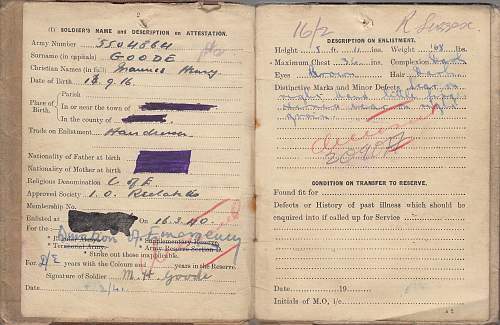 (I) SOLDIER'S NAME and DESCRIPTION on ATTESTATION.
Army Number 5504864
Surname (in capitals) GOODE
Christian Names (in full) Maurice Henry
Date of Birth 18.9.16.
Place of Birth.
Parish
In or near the town of
In the county of
Trade on Enlistment
Nationality of Father at birth
Nationality of Mother at birth
Religious Denomination C of E
Approved Society I.O. Rechabites
Membership No.
Enlisted at On 16.2.40
For the Duration of Emergency
* Regular Army. * Supplementary Reserve.
* Territorial Army. * Army Reserve Section D.
* Strike out those inapplicable.
For D/E years with the Colours and years in the Reserve.
Signature of Soldier M. H. Goode
Date
16/2 R. Sussex.
DESCRIPTION ON ENLISTMENT.
Height 5 ft. 11 ins. Weight 168 lbs.
Maximum Chest 36 ins. Complexion
Eyes Brown Hair
Distinctive Marks and Minor Defects
right hand little finger
right
groin.
CONDITION ON TRANSFER TO RESERVE.
Found fit for
Defects or History of past illness which should be
enquired into if called up for Service
Date 19
Initials of M.O. i/c